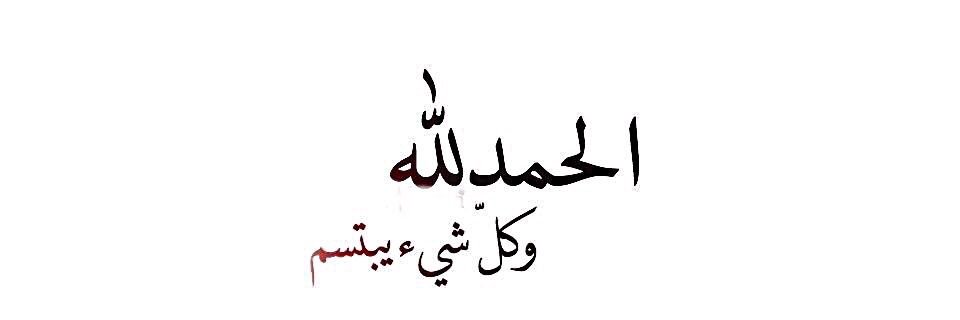 الحمدلله
وكلّ شيء يبتسم